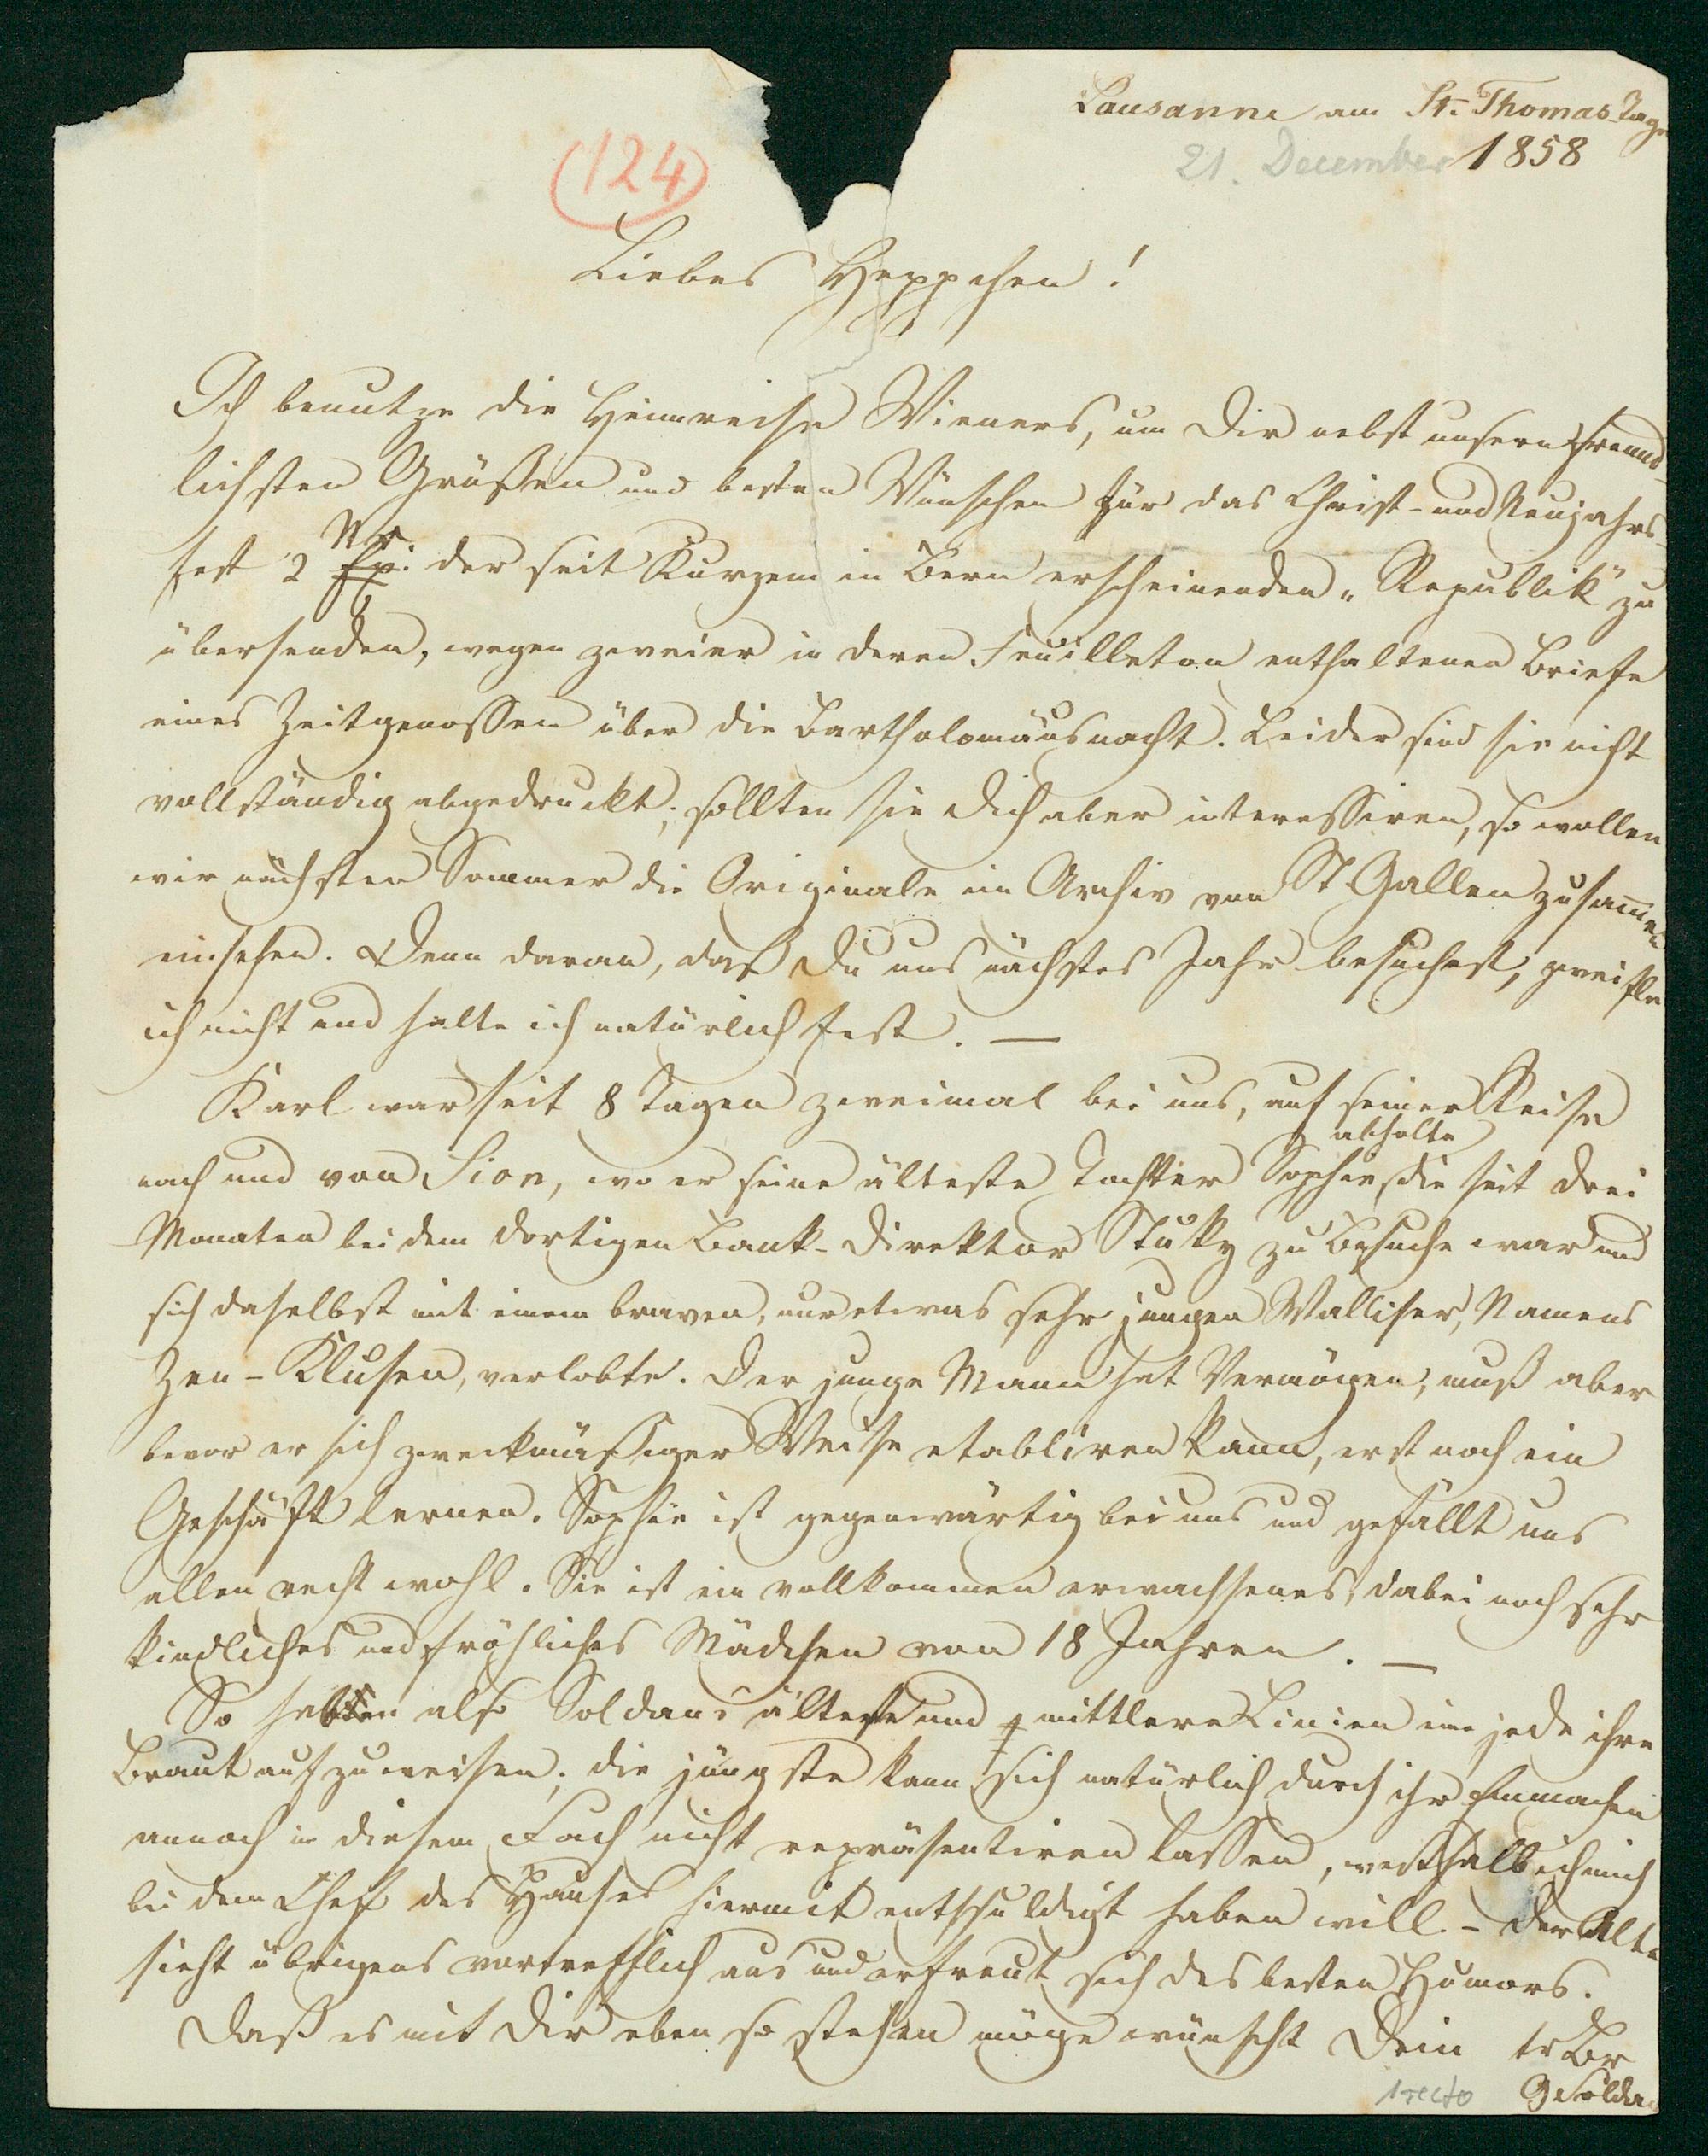 Lausanne am St. Thomas-Tage
21. December 1858
(124)
Liebes Heppchen!
Ich benutze die Heimreise Wieners, um Dir nebst unsern freund-
lichsten Grüßen und besten Wünschen für das Christ- und Neujahrs-
fest 2 Ex. Nr. der seit Kurzem in Bern erscheinenden „Republik“ zu
übersenden, wegen zweier in deren Feuilleton enthaltenen Briefe
eines Zeitgenossen über die Bartholomäusnacht. Leider sind sie nicht
vollständig abgedruckt; sollten sie Dich aber interessiren, so wollen
wir nächsten Sommer die Originale im Archiv von St Gallen zusammen
einsehen. Denn daran, daß Du uns nächstes Jahr besuchest, zweifle
ich nicht und halte ich natürlich fest. —
Karl war seit 8 Tagen zweimal bei uns, auf seiner Reise
nach und von Sion, wo er seine älteste Tochter Sophie abholte, die seit drei
Monaten bei dem dortigen Bank-Direktor Stuky zu Besuche war und
sich daselbst mit einem braven, nur etwas sehr jungen Walliser, Namens
Zen-Klusen, verlobte. Der junge Mann hat Vermögen, muß aber
bevor er sich zweckmäßiger Weise etabliren kann, erst noch ein
Geschäft lernen. Sophie ist gegenwärtig bei uns und gefällt uns
allen recht wohl. Sie ist ein vollkommen erwachsenes, dabei noch sehr
kindliches und fröhliches Mädchen von 18 Jahren. —
So hätten also Soldans älteste und mittlere Linien eine jede ihre
Braut aufzuweisen; die jüngste kann sich natürlich durch ihr Emmachen
annoch in diesem Fach nicht repräsentiren lassen, weßhalb ich mich
bei dem Chef des Hauses hiermit entschuldigt haben will. – Der Alte
sieht übrigens vortrefflich aus und erfreut sich des besten Humors.
Daß es mit Dir eben so stehen möge wünscht Dein tr Br
GSolda
1 recto